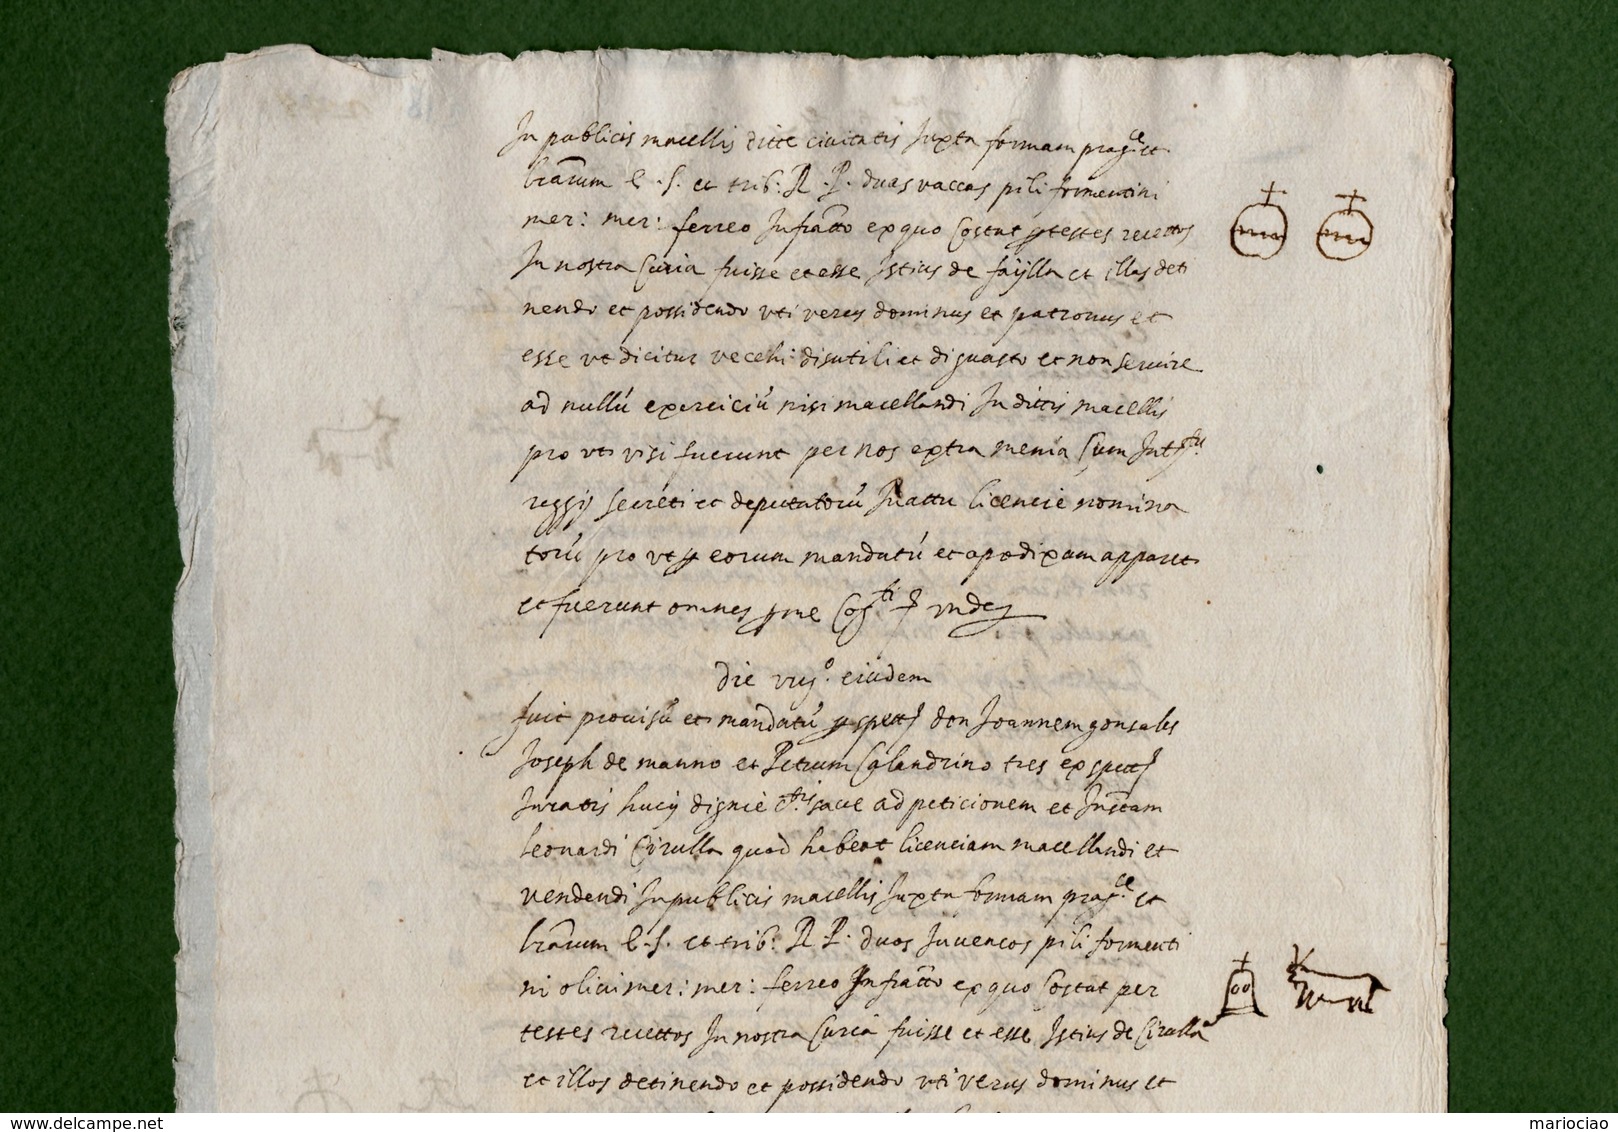 In publicis macellis ditte civitatis Juxta formam prag.ce et
bannorum C. S. et trib: R. P. duas vaccas pili formentini
mer: mer: ferreo Infratto ex quo Costat per testes recettos
In nostra Curia fuisse et esse Istius de fajlla et illas deti
nendo et possidendo uti verus dominus et patronus et
esse ut dicitur vecchi: disutili et di guasto et non servire
ad nullú exerciciú nisi macellandi In dittis macellis
pro uti visi fuerunt per nos extra menia Cum
reggij secreti et deputatorú In attu licencie nomina
torú pro ut per eorum mandatú et apodixam apparet
et fuerunt omnes
Die eiusdem
fuit provisú et mandatú per spett. don Joannem gonsales
Joseph de manno et Petrum Calandrino tres ex spett.
Juratis hucij ad peticionem et Instam
leonardi Cirulla quod habeat licenciam macellandi et
vendendi In publicis macellis Juxta formam prag.ce et
C. S. et trib: R. P. duos Juvencos pili formenti
ni mer: mer: ferreo Infratto ex quo Costat per
testes recettos In nostra Curia fuisse et esse Istius de Cirulla
et illos detinendo et possidendo uti verus dominus et
www.delcampe.net
mariociao